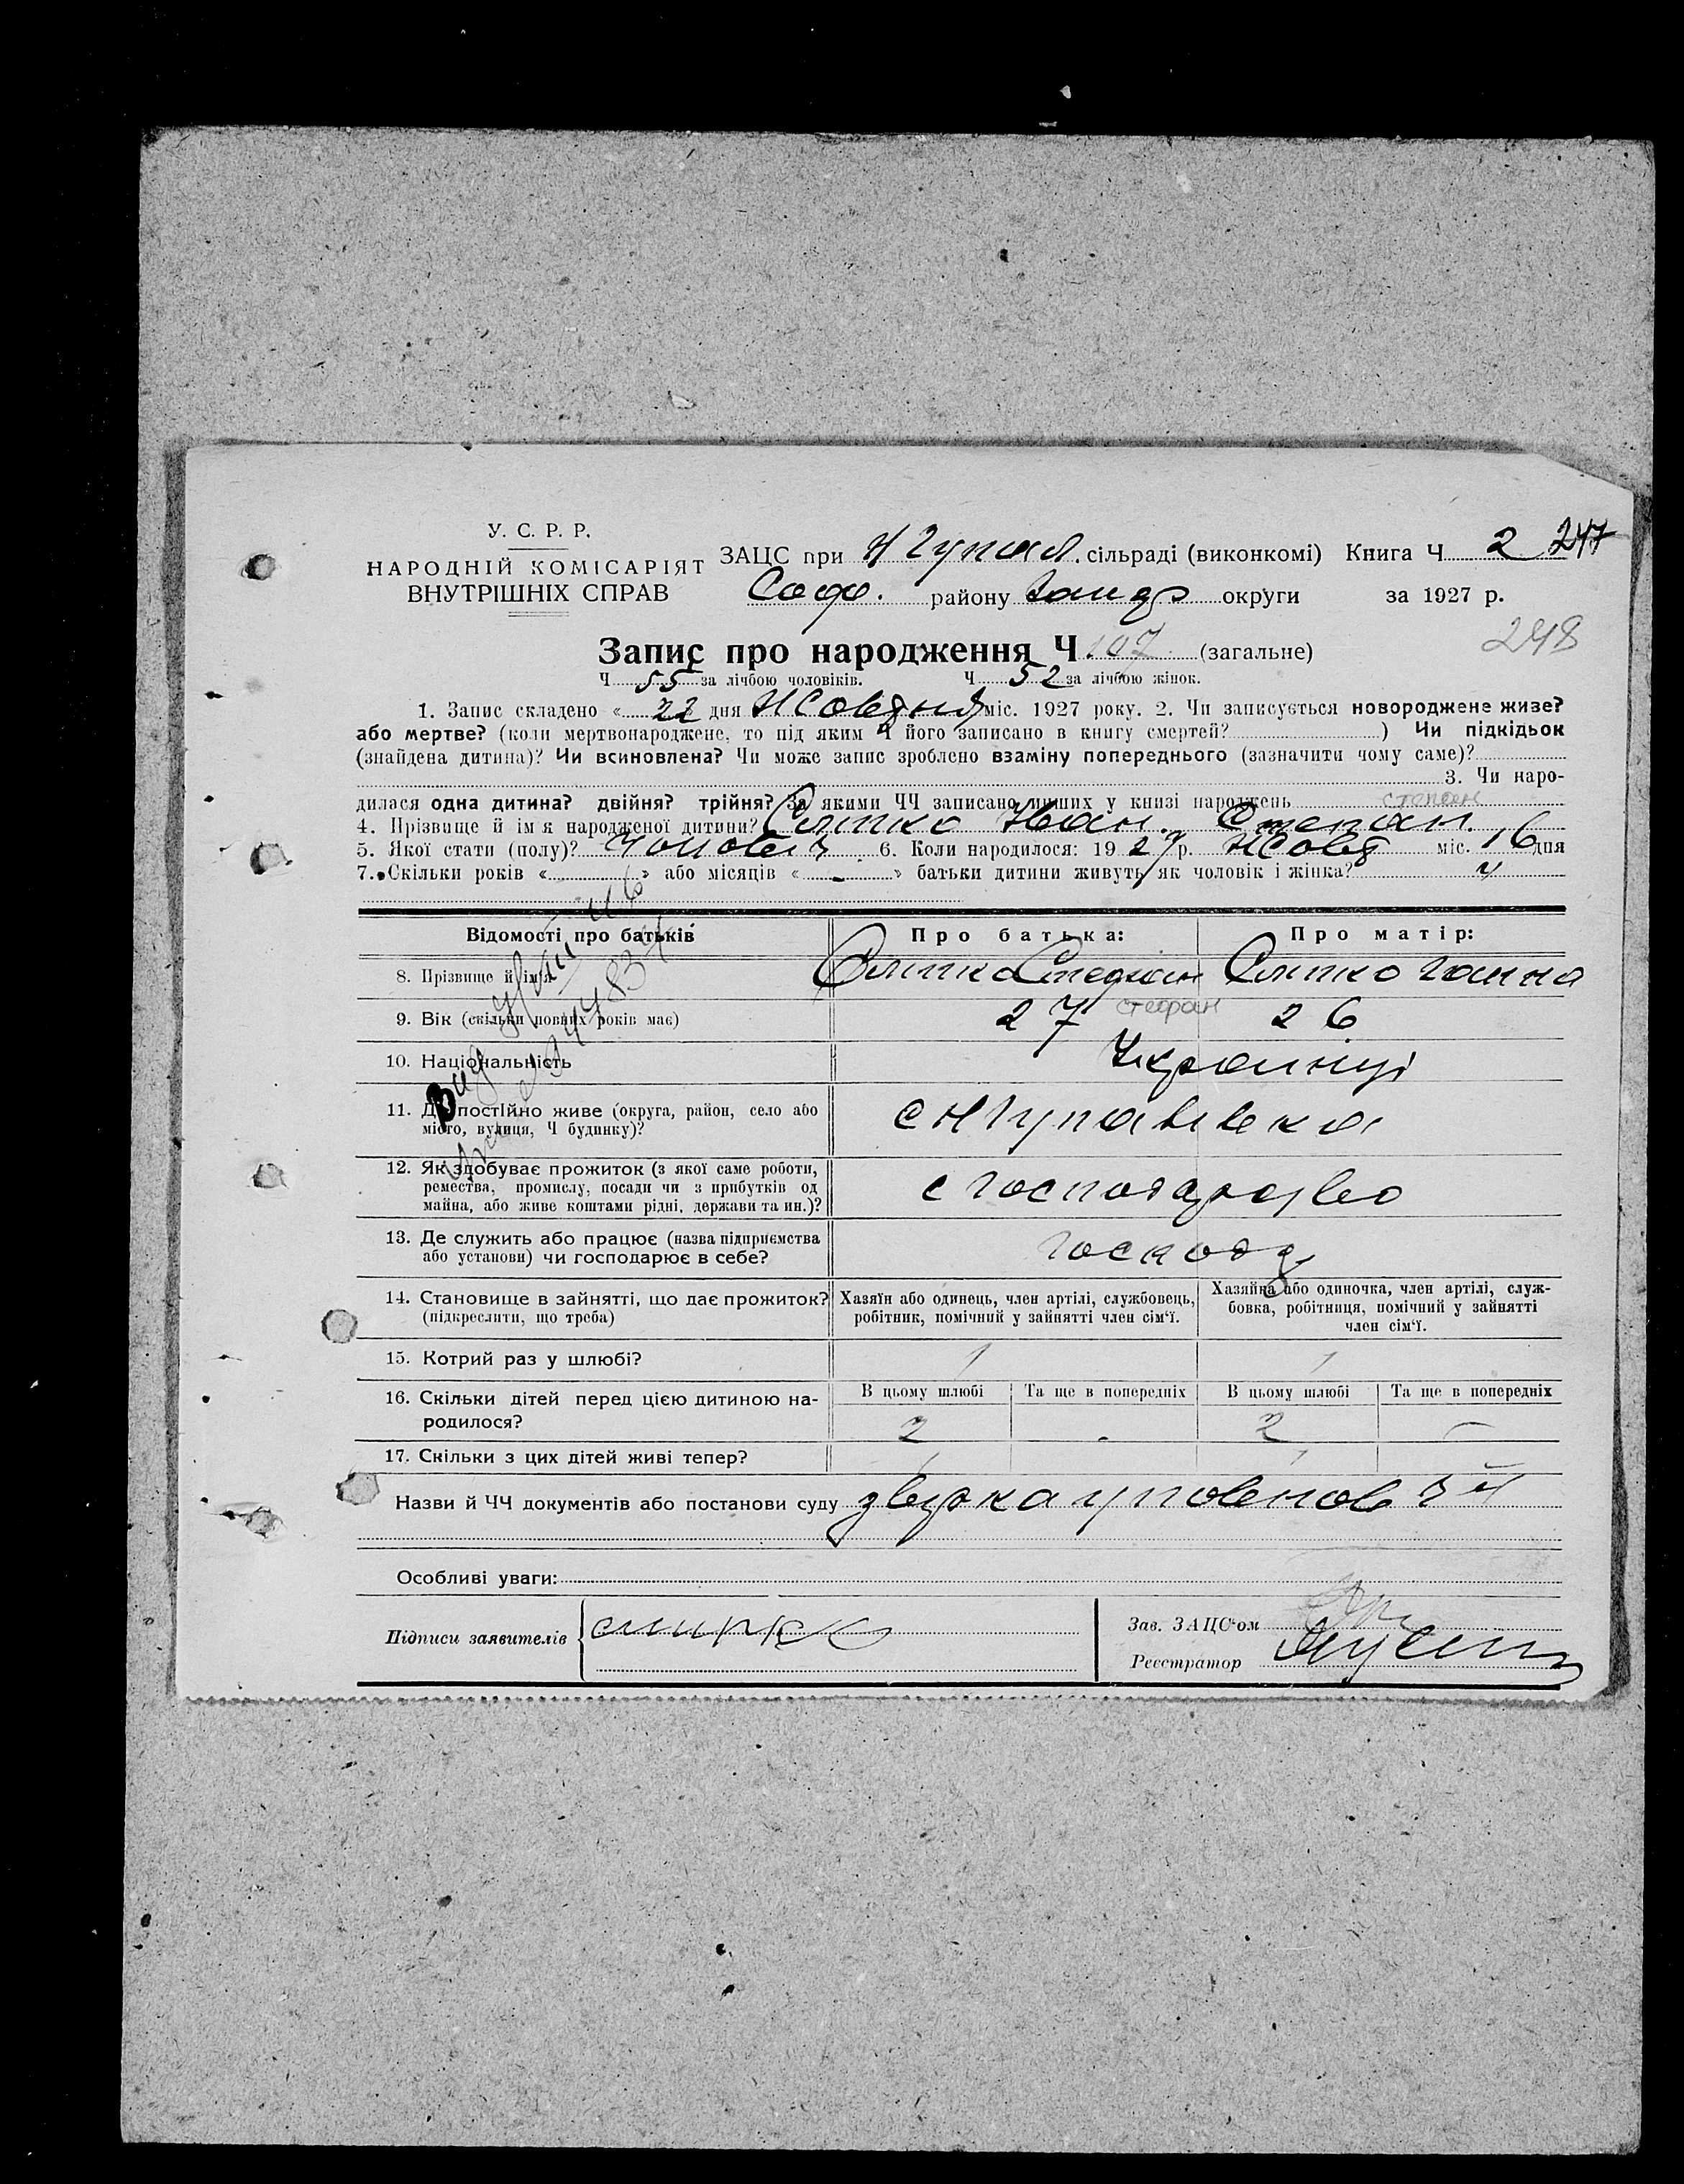 У. С. Р. Р.
НАРОДНІЙ КОМІСАРІЯТ
ВНУТРІШНІХ СПРАВ
ЗАЦС при сільраді (виконкомі) Книга Ч 2 247
Соф. району округи за 1927 р.
248
Запис про народження Ч 107 (загальне)
Ч 55 за лічбою чоловіків. Ч 52 за лічбою жінок.
1. Запис складено « 22 дня Жовтня міс. 1927 року. 2. Чи записується новороджене живе?
або мертве? (коли мертвонароджене, то під яким Ч його записано в книгу смертей? ) Чи підкідьок
(знайдена дитина)? Чи всиновлена? Чи може запис зроблено взаміну попереднього (зазначити чому саме)?
3. Чи наро-
дилася одна дитина? двійня? трійня? За якими ЧЧ записано инших у книзі народжень степан
4. Прізвище й ім'я народженої дитини? Іван Степан.
5. Якої стати (полу)? 6. Коли народилося: 19 27 р. Жовт міс. 16 дня
7. Скільки років « » або місяців « - » батьки дитини живуть як чоловік і жінка? 4
Відомості про батьків Про батька: Про матір:
8. Прізвище й ім'я Ганна
9. Вік (скільки повних років має) 27 стефан 26
10. Національність Українці
11. Де постійно живе (округа, район, село або
місто, вулиця, Ч будинку)?
12. Як здобуває прожиток (з якої саме роботи,
ремества, промислу, посади чи з прибутків од
майна, або живе коштами рідні, держави та ин.)?
13. Де служить або працює (назва підприємства
або установи) чи господарює в себе?
14. Становище в зайнятті, що дає прожиток?
(підкреслити, що треба)
Хазяїн або одинець, член артілі, службовець,
робітник, помічний у зайнятті член сім'ї.
Хазяйка або одиночка, член артілі, служ-
бовка, робітниця, помічний у зайнятті
член сім'ї.
15. Котрий раз у шлюбі? 1 1
16. Скільки дітей перед цією дитиною на-
родилося?
В цьому шлюбі Та ще в попередніх В цьому шлюбі Та ще в попередніх
2 - 2 -
17. Скільки з цих дітей живі тепер?
Назви й ЧЧ документів або постанови суду
Особливі уваги:
Підписи заявителів
Зав. ЗАЦС'ом
Реєстратор